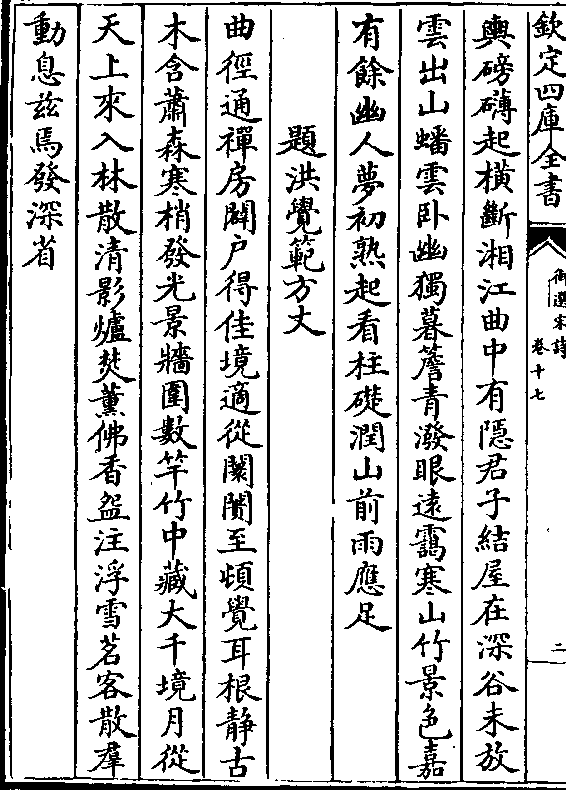 欽定四庫全書
御選宋詩
卷十七
二
輿磅礴起橫斷湘江曲中有隱君子結屋在深谷未放
雲出山蟠雲卧幽獨暮簷青潑眼遠靄寒山竹景色嘉
有餘幽人夢初熟起看柱礎潤山前雨應足
題洪覺範方丈
曲徑通禪房闢户得佳境適從闤闠至頓覺耳根静古
木含蕭森寒梢發光景牆圍數竿竹中藏大千境月從
天上來入林散清影爐焚薰佛香盌注浮雪茗客散羣
動息兹焉發深省